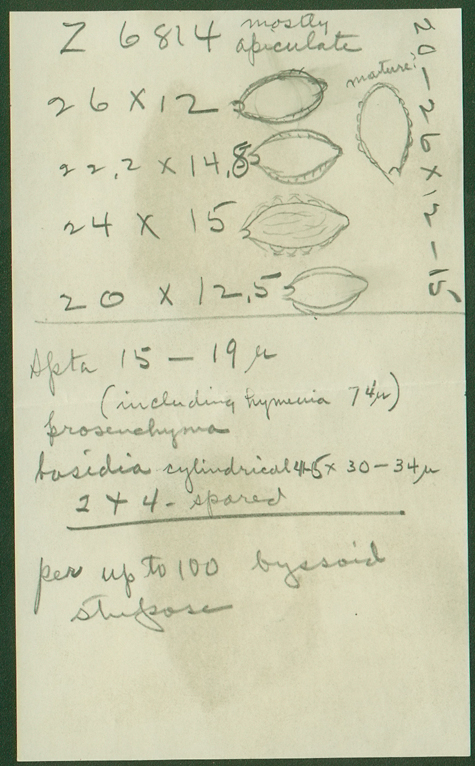 Z 6814 mostly
apiculate
26 x 12
mature?
22,2 x 14,8
24 x 15
20 x 12,5
20-26 x 12-15
Spta 15 - 19 μ
(including hymenia 74μ)
prosenchyma
basidia cylindrical 4-5 x 30-34μ
2 + 4 - spored
per up to 100 byssoid
stupose